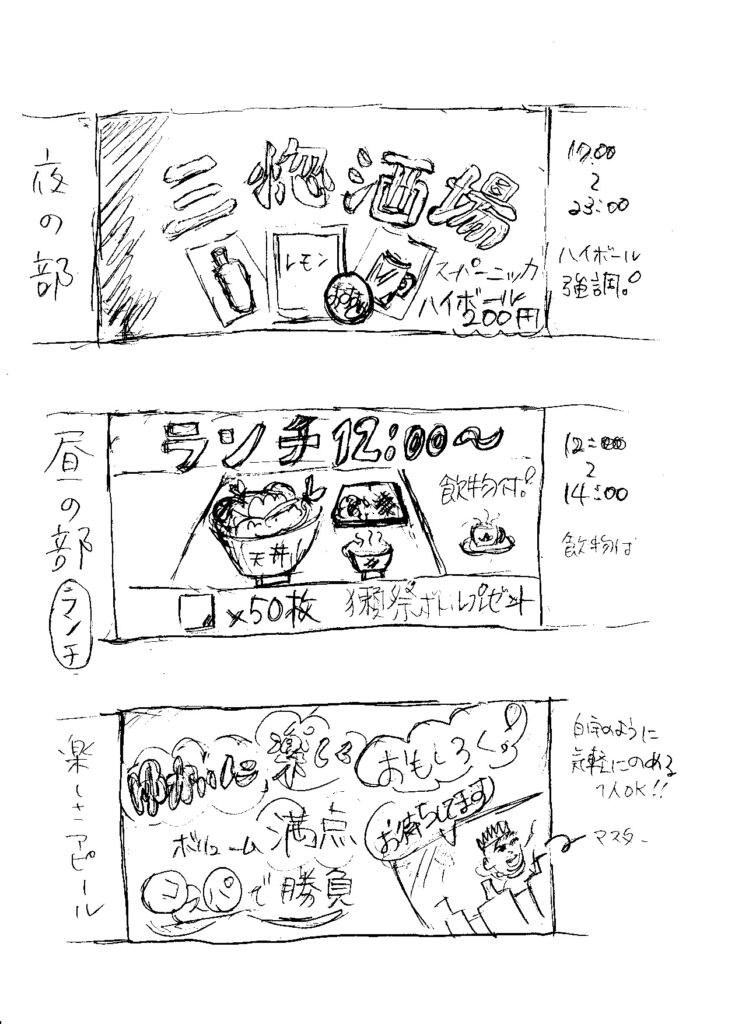 夜の部
三惚酒場
レモン
おすすめ
スーパーニッカ
ハイボール
200円
17:00
〜
23:00
ハイボール
強調。
昼の部
ランチ
ランチ12:00〜
天丼
飲物付。
×50枚 獺祭ボトルプレゼント
12:00
〜
14:00
飲物付
楽しさアピール
ゆかいに
楽しく
おもしろく。
ボリューム満点
コスパで勝負
お待ちしてます
自宅のように
気軽にのめる
1人OK!!
マスター